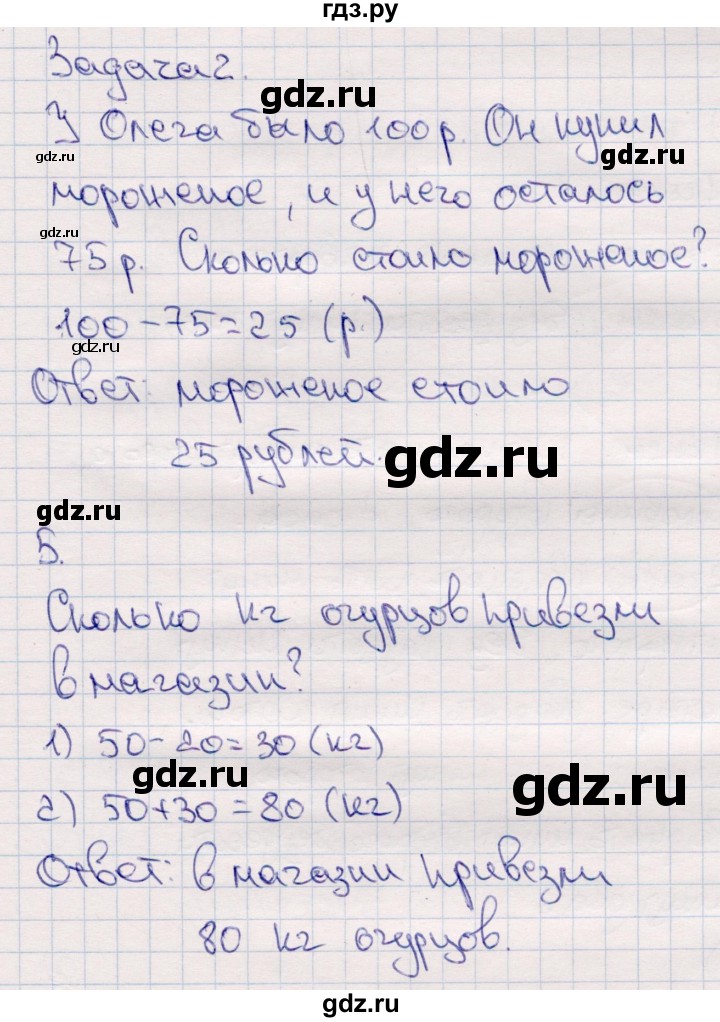 гдз.ру
Задача 2.
gdz.ru
У Олега было 100 р. Он купил
gdz.ru
gdz.ru
мороженое, и у него осталось
gdz.ru
75 р. Сколько стоило мороженое?
100 - 75 = 25 (р.)
gdz.ru
Ответ: мороженое стоило
25 рублей.
gdz.ru
gdz.ru
5.
gdz.ru
Сколько кг огурцов привезли
в магазин?
1) 50 - 20 = 30 (кг)
gdz.ru
gdz.ru
2) 50 + 30 = 80 (кг)
Ответ: в магазин привезли
80 кг огурцов.
gdz.ru